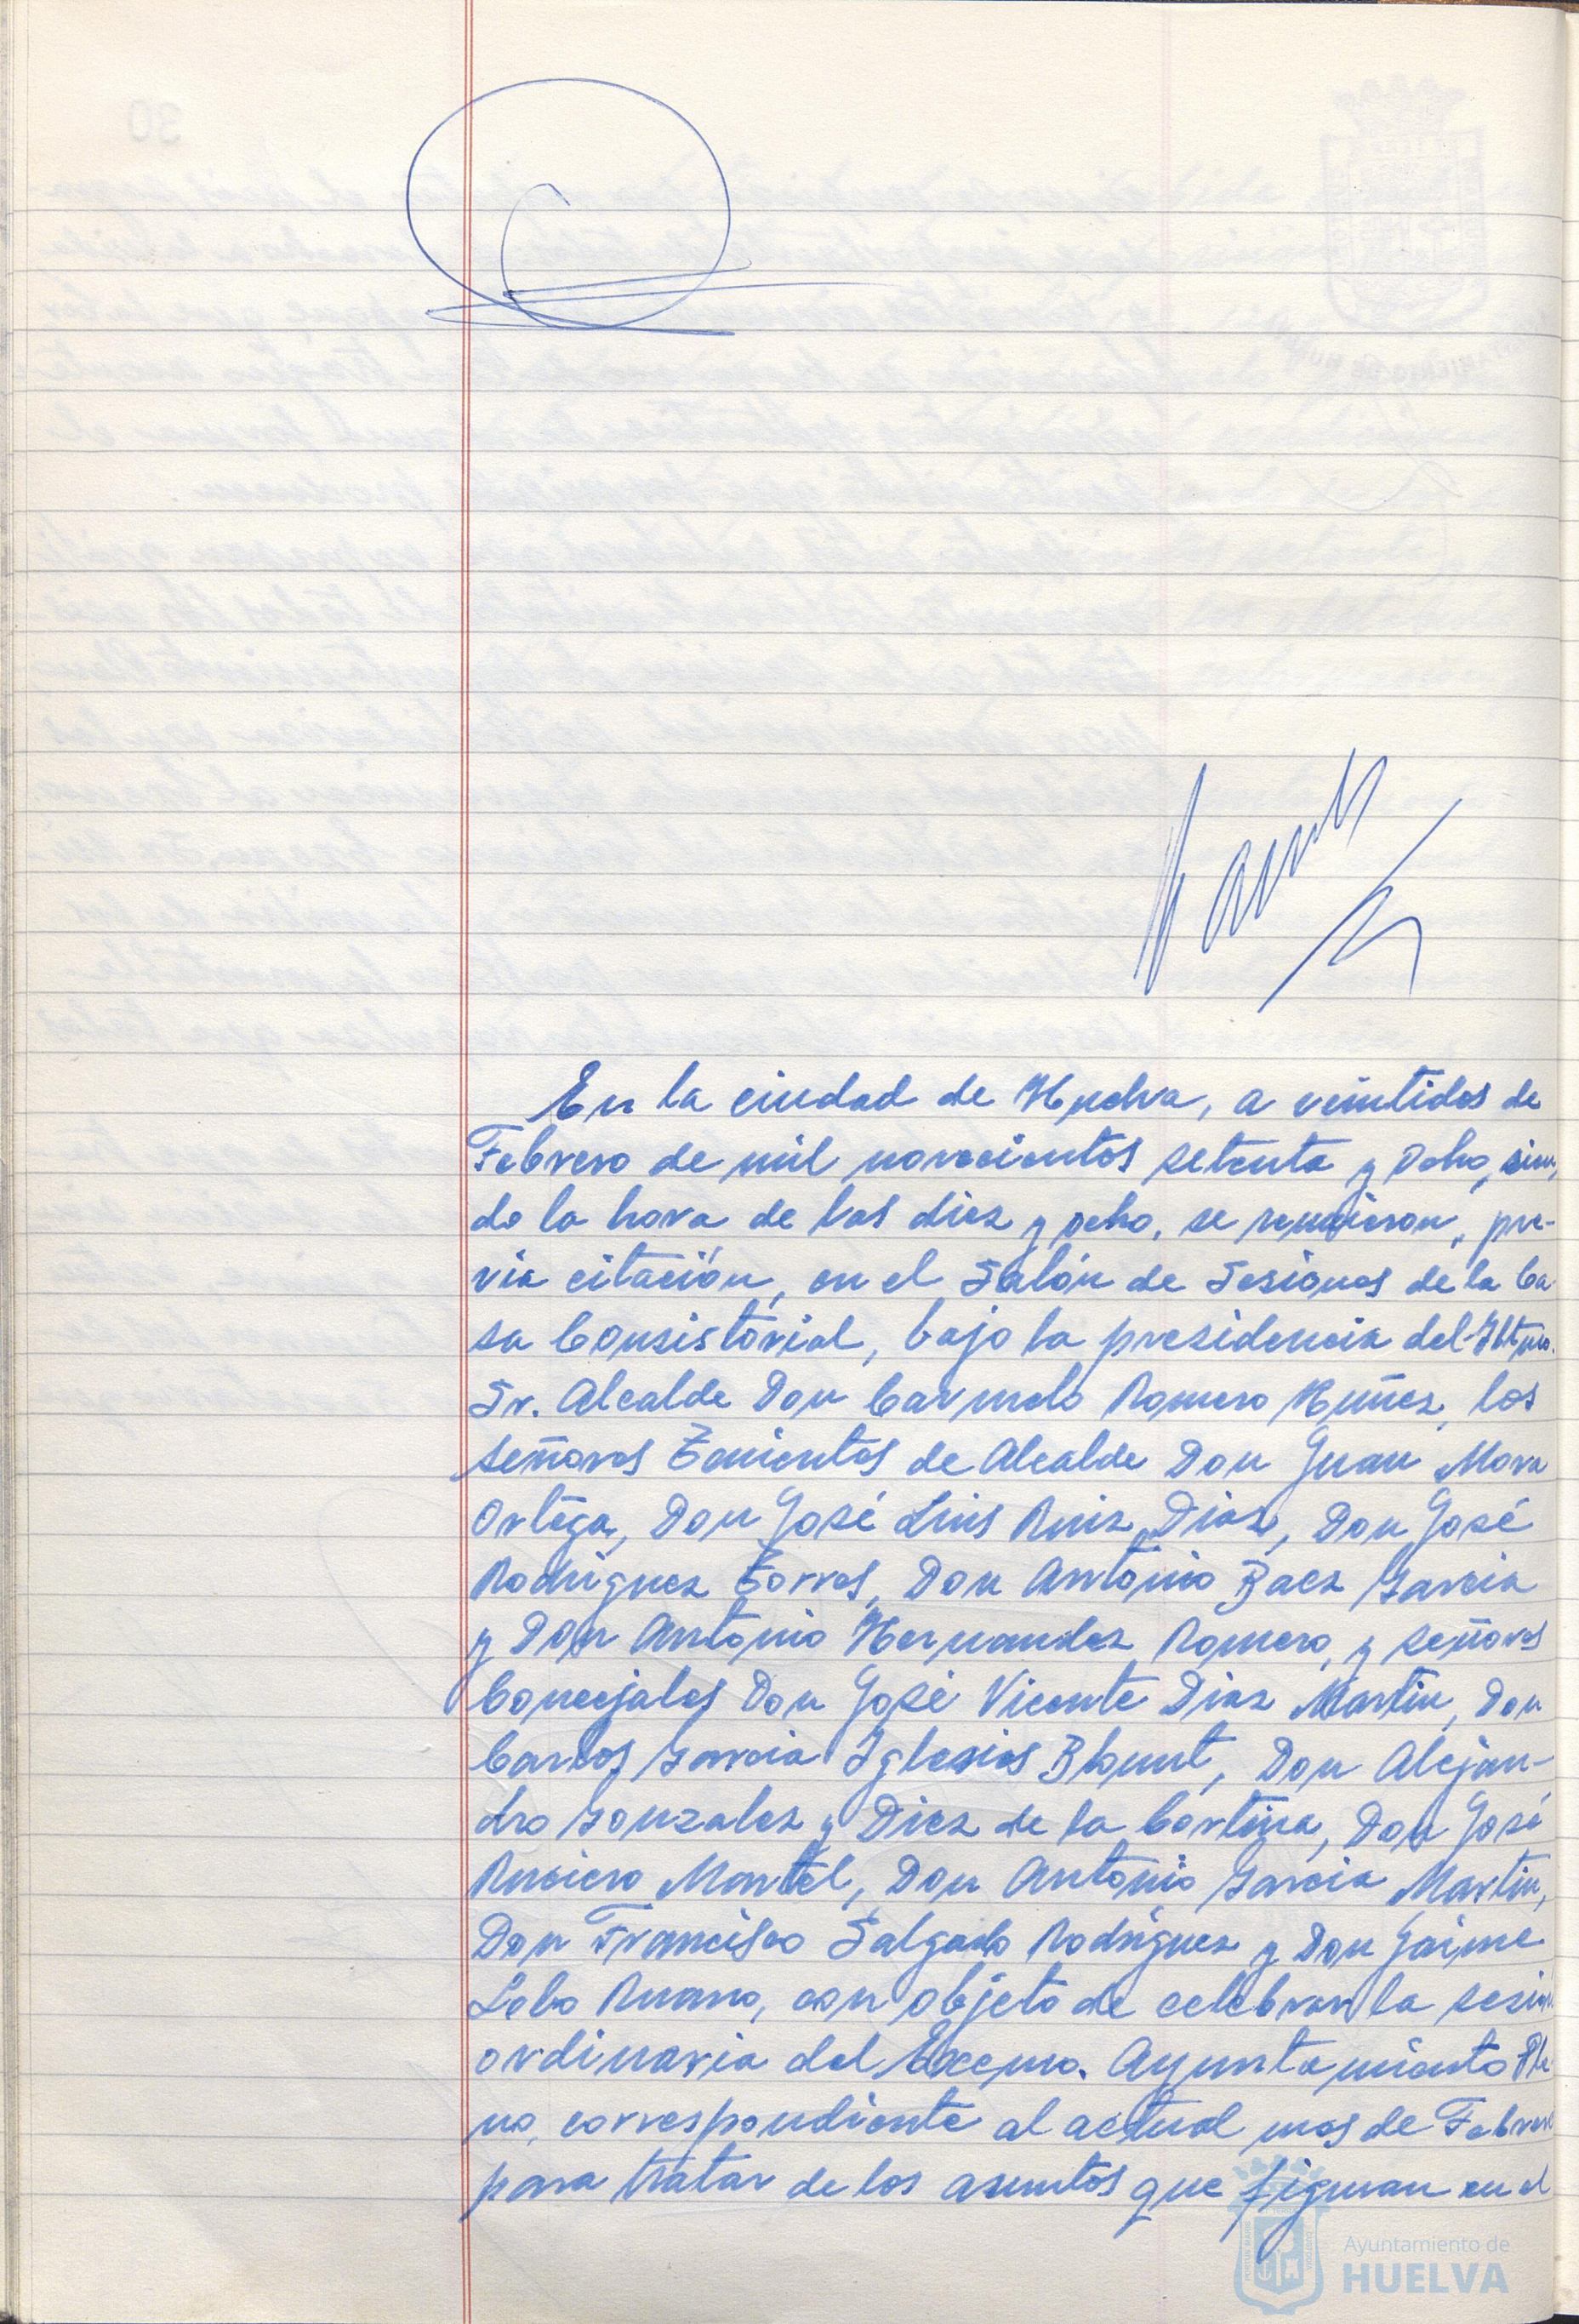 En la ciudad de Huelva, a veintidos de
Febrero de mil novecientos setenta y ocho, sien,
do la hora de las diez y ocho, se reunieron, pre-
via citación, en el Salón de Sesiones de la Ca
sa Consistorial, bajo la presidencia del Iltmo.
Sr. Alcalde Don Carmelo Romero Nuñez, los
señores Tenientes de Alcalde Don Juan Mora
Ortega, Don José Luis Ruiz Diaz, Don José
Rodriguez Torres, Don Antonio Baez Garcia
y Don Antonio Hernandez Romero, y señores
Concejales Don José Vicente Diaz Martin, Don
Carlos Garcia Iglesias Blount, Don Alejan-
dro Gonzalez y Diez de la Cortina, Don José
Rubiero Martel, Don Antonio Garcia Martin,
Don Francisco Salgado Rodriguez y Don Jaime
Lobo Ruano, con objeto de celebrar la sesion
ordinaria del Excmo. Ayuntamiento Ple
no, correspondiente al actual mes de Febrero
para tratar de los asuntos que figuran en el
Ayuntamiento de
HUELVA